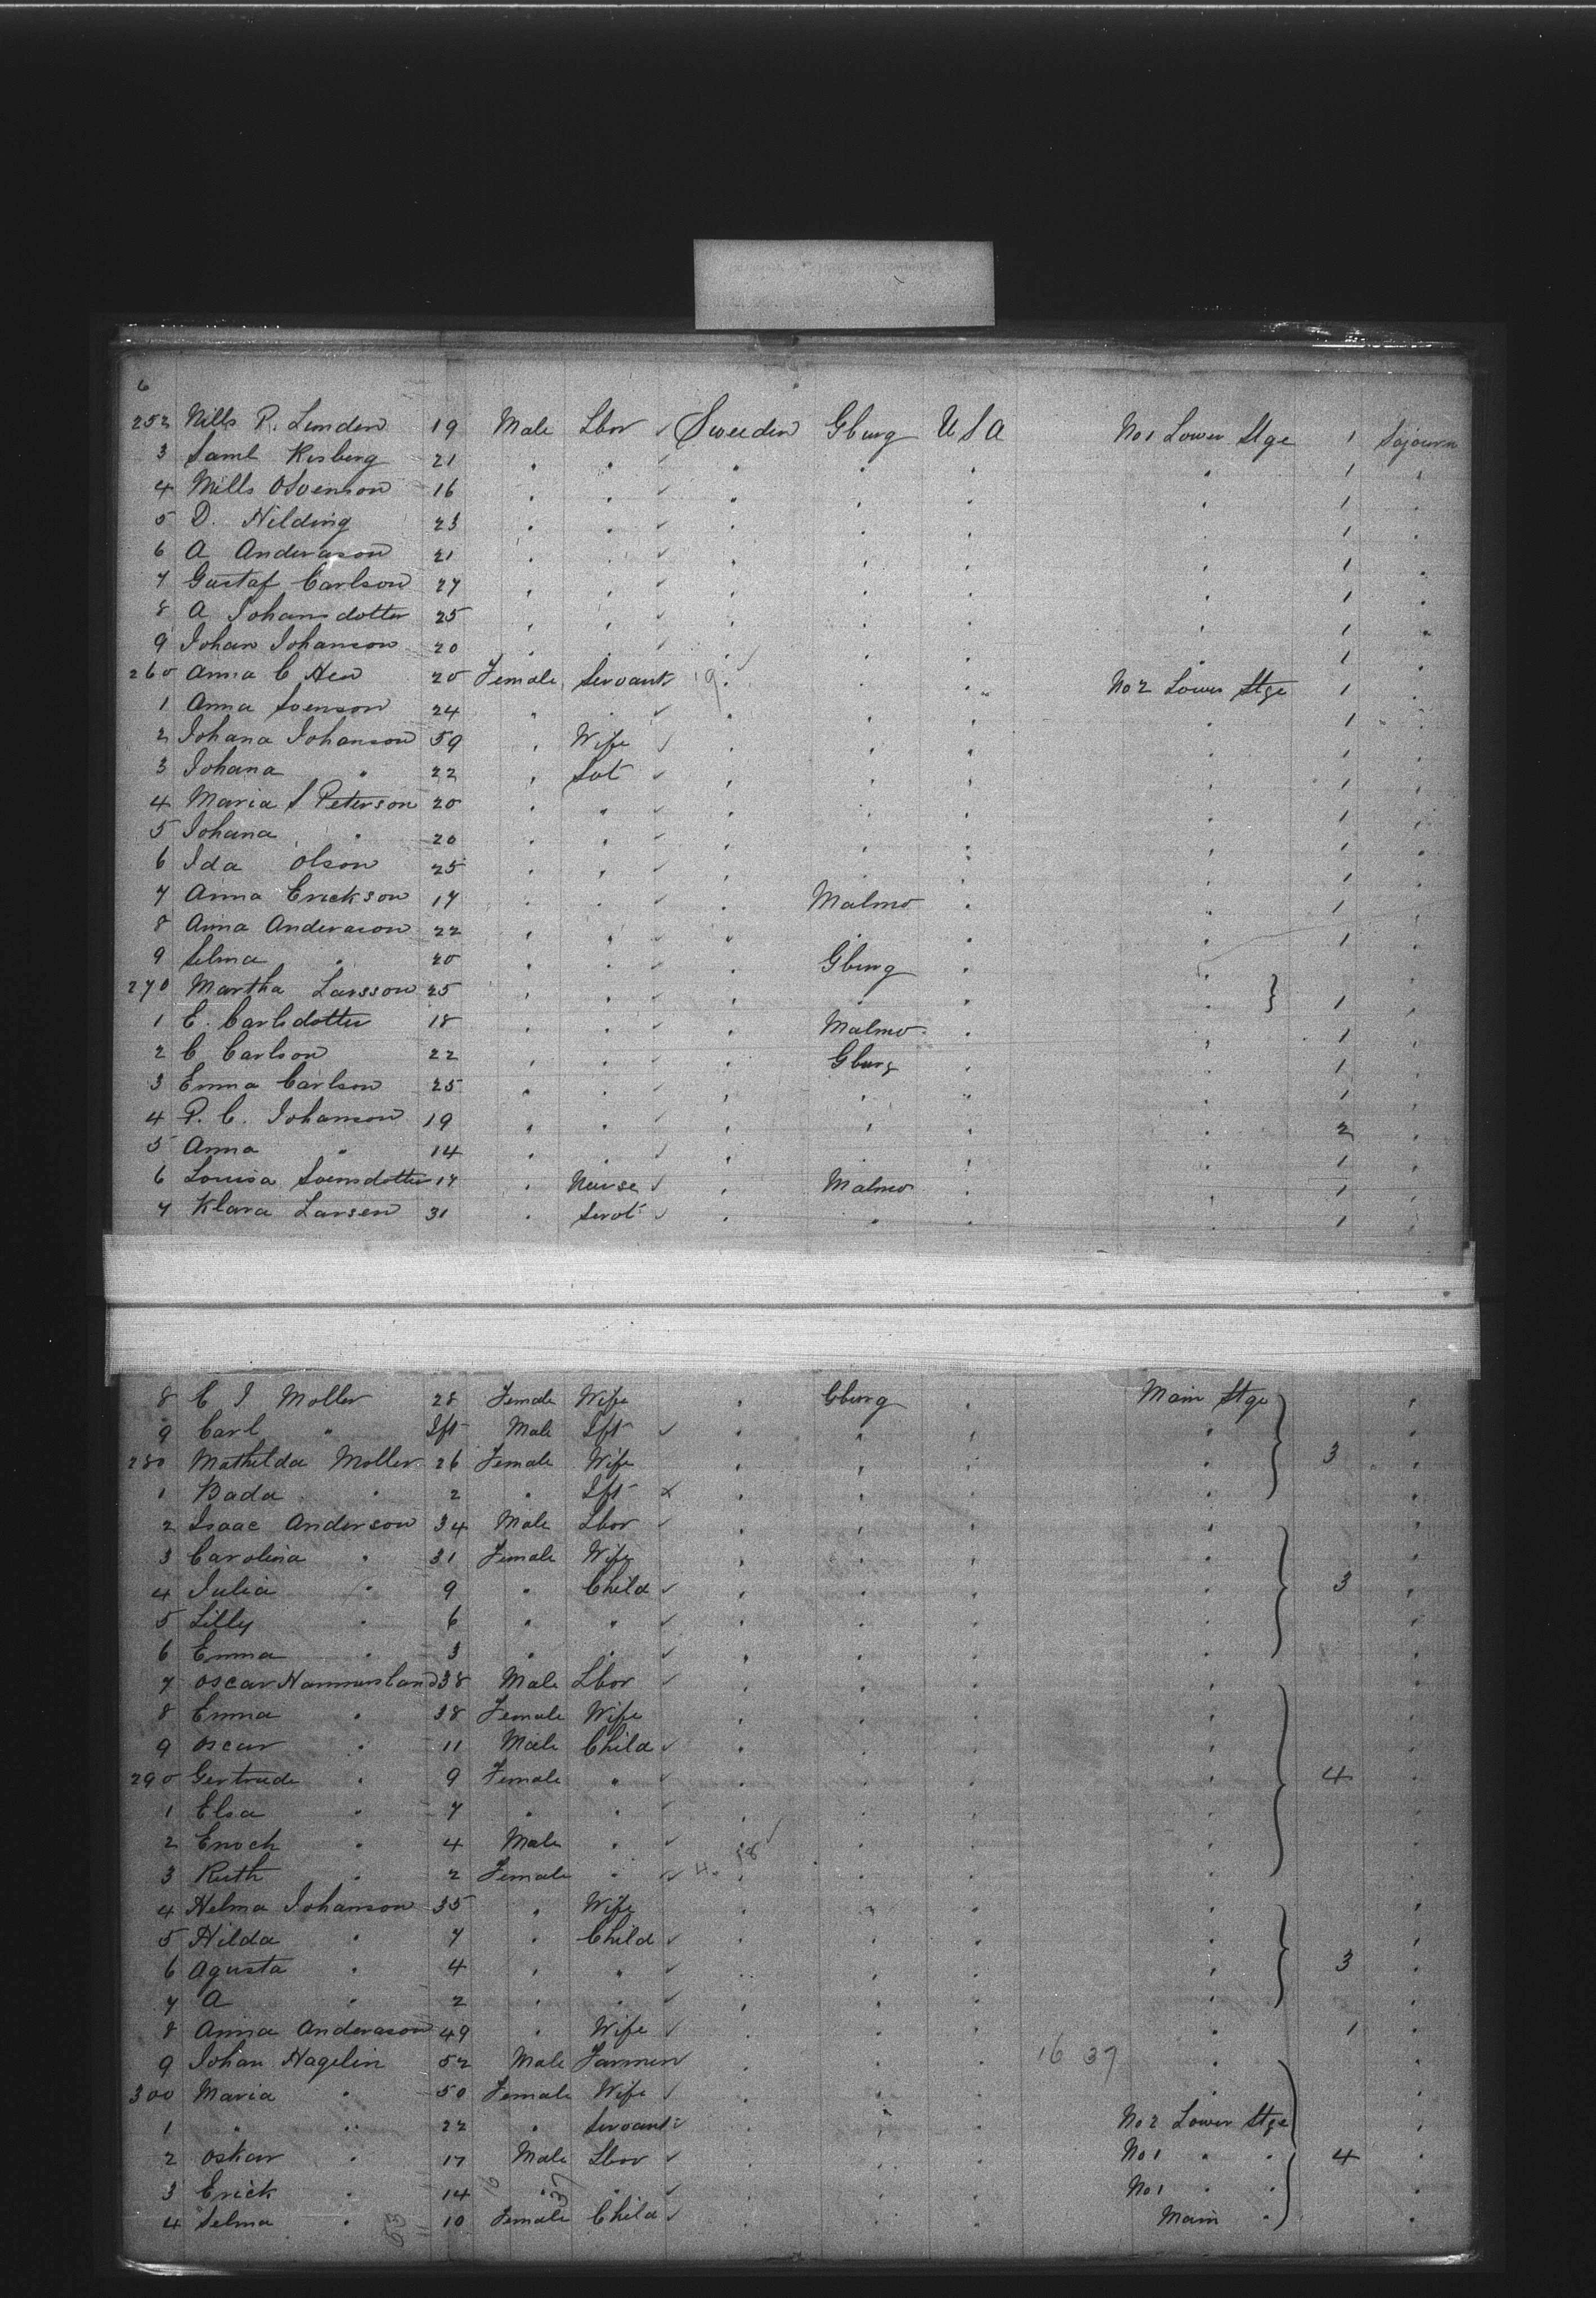 6
252 Nills P. Linden 19 Male Lbor ✓ Sweeden Gburg U S A No 1 Lower Stge 1 Sojourn
3 Saml Kisberg 21 " " ✓ " " " " 1 "
4 Nills O Svenson 16 " " ✓ " " " " 1 "
5 D. Hilding 23 " " ✓ " " " " 1 "
6 A Anderason 21 " " ✓ " " " " 1 "
7 Gustaf Carlson 27 " " ✓ " " " " 1 "
8 A Johansdotter 25 " " ✓ " " " " 1 "
9 Johan Johanson 20 " " ✓ " " " " 1 "
260 Anna C Hen 20 Female Servant 19 " " " No 2 Lower Stge 1 "
1 Anna Svenson 24 " " ✓ " " " " 1 "
2 Johana Johanson 59 " Wife ✓ " " " " 1 "
3 Johana " 22 " Svt ✓ " " " " 1 "
4 Maria S Peterson 20 " " ✓ " " " " 1 "
5 Johana " 20 " " ✓ " " " " 1 "
6 Ida Olson 25 " " ✓ " " " " 1 "
7 Anna Erickson 17 " " ✓ " Malmo " " 1 "
8 Anna Anderason 22 " " ✓ " " " " 1 "
9 Selma " 20 " " ✓ " Gburg " " "
270 Martha Larsson 25 " " ✓ " " " " } 1 "
1 E. Carlsdotter 18 " " ✓ " Malmo " " 1 "
2 C Carlson 22 " " ✓ " Gburg " " 1 "
3 Emma Carlson 25 " " ✓ " " " " 1 "
4 P. C. Johanson 19 " " ✓ " " " " 2 "
5 Anna " 14 " " ✓ " " " " 1 "
6 Louisa Svensdotter 17 " Nurse ✓ " Malmo " " 1 "
7 Klara Larsen 31 " Servt ✓ " " " " 1 "
8 C J Moller 28 Female Wife " Gburg " Main Stge "
9 Carl " Ift Male Ift ✓ " " " " "
280 Mathilda Moller 26 Female Wife " " " " 3 "
1 Bada " 2 " Ift x " " " " "
2 Isaac Anderson 34 Male Lbor ✓ " " " " "
3 Carolina " 31 Female Wife " " " " "
4 Julia " 9 " Child ✓ " " " " 3 "
5 Lilly " 6 " " ✓ " " " " "
6 Emma " 3 " " ✓ " " " " "
7 Oscar Hammersland 38 Male Lbor ✓ " " " " "
8 Emma " 38 Female Wife " " " " "
9 Oscar " 11 Male Child ✓ " " " " "
290 Gertrude " 9 Female " ✓ " " " " 4 "
1 Elsa " 7 " " ✓ " " " " "
2 Enoch " 4 Male " ✓ " " " " "
3 Ruth " 2 Female " ✓ 4 " 58 " " " "
4 Helma Johanson 35 " Wife " " " " "
5 Hilda " 7 " Child ✓ " " " " "
6 Agusta " 4 " " ✓ " " " " 3 "
7 A " 2 " " ✓ " " " " "
8 Anna Anderason 49 " Wife ✓ " " " " 1 "
9 Johan Hagelin 52 Male Farmer " " " 16 37 " "
300 Maria " 50 Female Wife ✓ " " " " "
1 " " 22 " Servant ✓ " " " No 2 Lower Stge "
2 Oskar " 17 Male Lbor ✓ " " " No 1 " " 4 "
3 Erick " 14 " " ✓ " " " No 1 " " "
4 Selma " 10 Female Child ✓ " " " Main " "